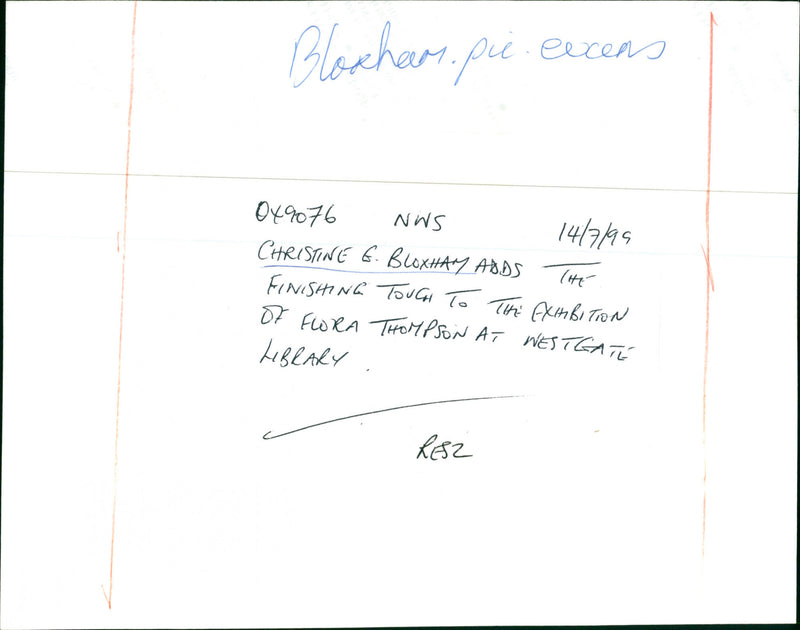 Bloxham. pic.
OX9076 NWS 14/7/99
CHRISTINE G. BLOXHAM ADDS THE
FINISHING TOUCH TO THE EXHIBITION
OF FLORA THOMPSON AT WESTGATE
LIBRARY.